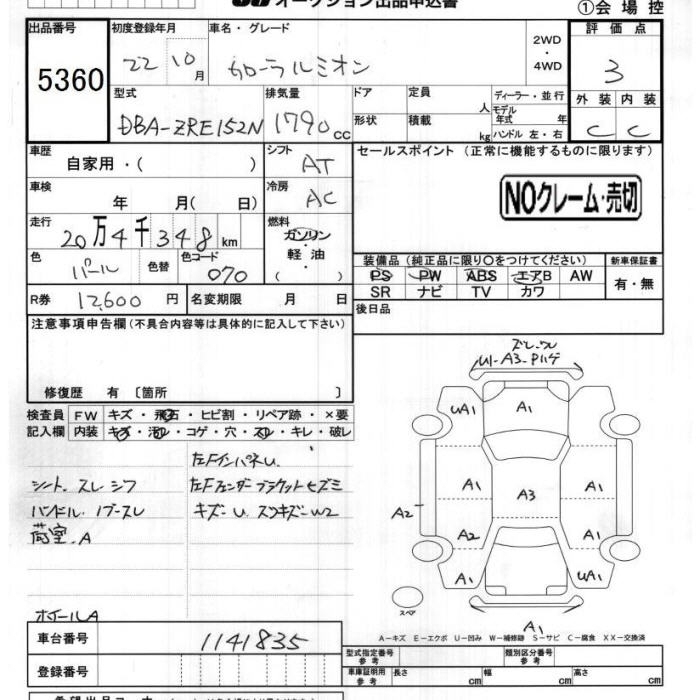 オークション出品申込書
①会場控
出品番号 初度登録年月 車名・グレード 評価点
5360 22 10月 カローラルミオン 2WD・4WD 3
型式 排気量 ドア 定員 人 ディーラー・並行 外装 内装
DBA-ZRE152N 1790cc 形状 積載 kg モデル年式 年 ハンドル 左・右 C C
車歴 シフト セールスポイント (正常に機能するものに限ります)
自家用・( ) AT
車検 冷房 NOクレーム・売切
年 月( 日) AC
走行 燃料
20万4千348km ガソリン・軽油・( )
色 色替 色コード 装備品 (純正品に限り○をつけてください) 新車保証書
パール 070 PS PW ABS エアB AW 有・無
R券 12,600円 名変期限 月 日 SR ナビ TV カワ
注意事項申告欄(不具合内容等は具体的に記入して下さい) 後日品
修復歴 有 〔箇所 〕
検査員 FW キズ・飛石・ヒビ割・リペア跡・×要
記入欄 内装 キズ・汚れ・コゲ・穴・スレ・キレ・破レ
左FインパネU.
シート.スレ シワ 左Fフェンダーブラケットキズミ
ハンドル.
キズ-U
W2
荷室.A
ホイールA
A3
UA1 A1
A1 A3 A1
A2
A2 A1
A1 UA1
スペア
A1
A-キズ E-エクボ U-凹み W-補修跡 S-サビ C-腐食 XX-交換済
車台番号 1141835
型式指定番号 参考 類別区分番号 参考
登録番号 車庫証明用 参考 長さ cm 幅 cm 高さ cm
希望出品コーナー